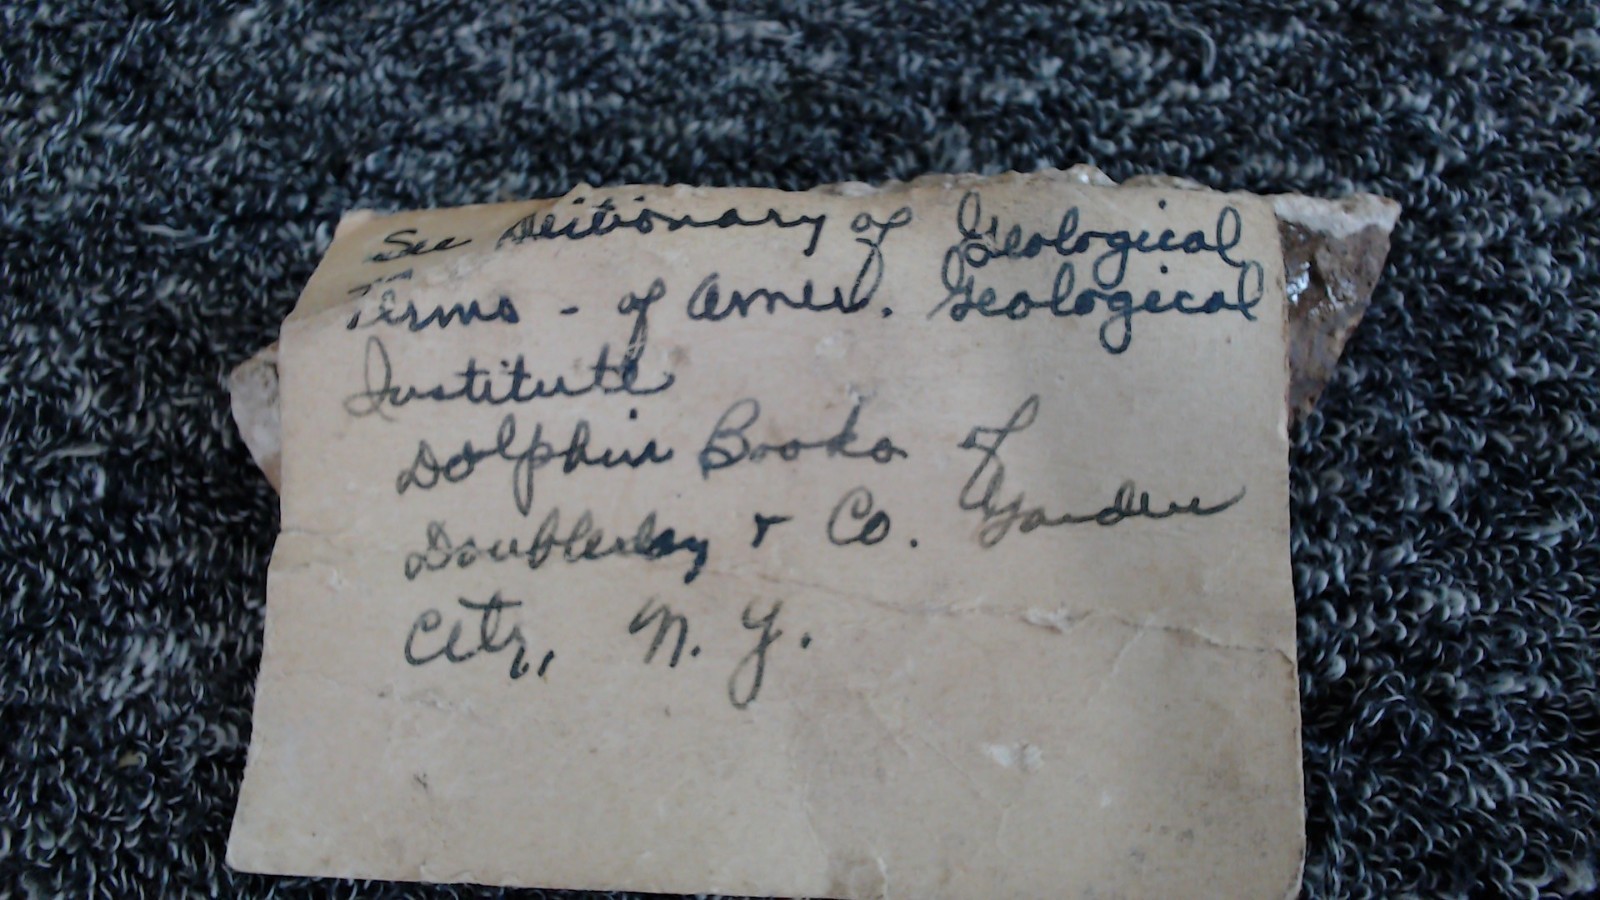 See Dictionary of Geological
Terms - of Amer. Geological
Institute
Dolphin Books of
Doubleday & Co. Garden
City, N. Y.